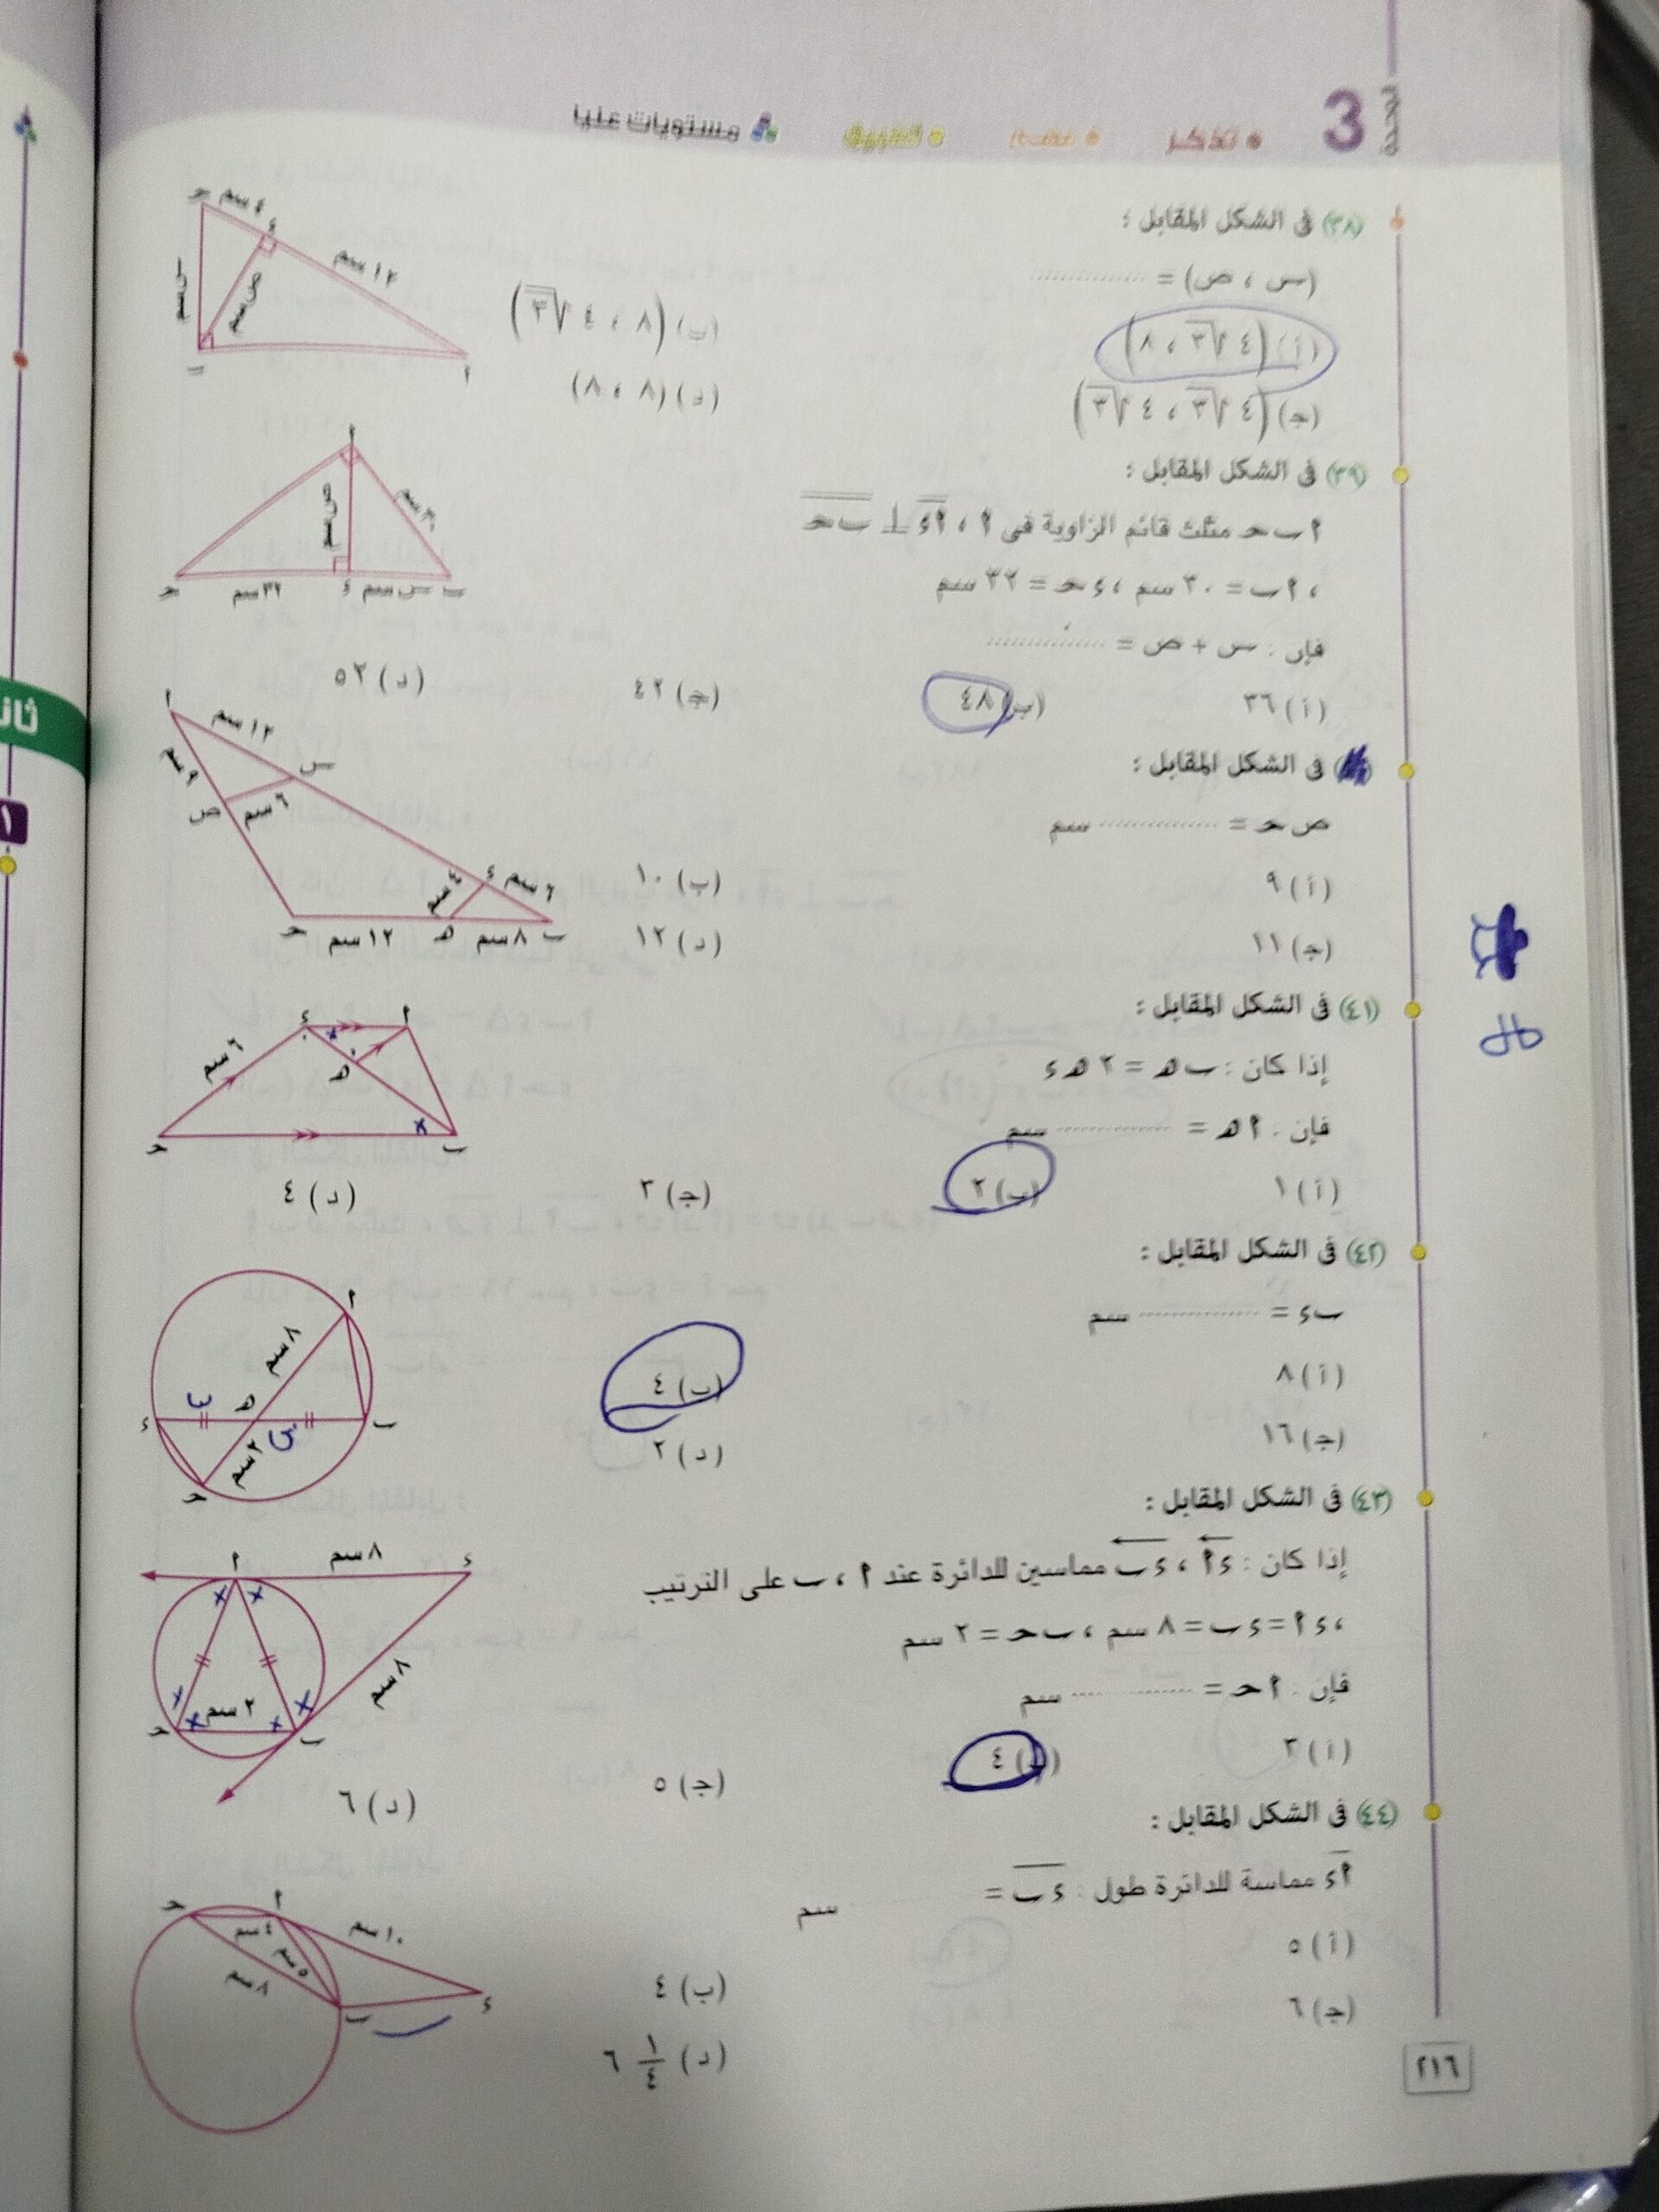 الوحدة 3
• تذكر • فهم • تطبيق مستويات عليا
(٣٨) فى الشكل المقابل :
(س ، ص) = ..............
(أ) (٤√٣ ، ٨)
(ب) (٨ ، ٤√٣)
(ج) (٤√٣ ، ٤√٣)
(د) (٨ ، ٨)
ح ٤ سم ء ١٢ سم أ
س سم ص سم ب
(٣٩) فى الشكل المقابل :
أ ب ح مثلث قائم الزاوية فى أ ، أء ⊥ ب ح
، أ ب = ٣٠ سم ، ء ح = ٣٢ سم
فإن : س + ص = ..............
(أ) ٣٦ (ب) ٤٨ (ج) ٤٢ (د) ٥٢
أ ٣٠ سم ص سم
ح ٣٢ سم ء س سم ب
فى الشكل المقابل :
ص ح = .............. سم
(أ) ٩
(ب) ١٠
(ج) ١١
(د) ١٢
أ ١٢ سم س
٩ سم ص ٦ سم
ء ٦ سم
ح ١٢ سم ه ٨ سم ب
(٤١) فى الشكل المقابل :
إذا كان : ب ه = ٢ ه ء
فإن : أ ه = .............. سم
(أ) ١ (ب) ٢ (ج) ٣ (د) ٤
ء أ
٦ سم ه
ح ب
(٤٢) فى الشكل المقابل :
ب ء = .............. سم
(أ) ٨
(ب) ٤
(ج) ١٦
(د) ٢
أ ٨ سم
ء س ه س ب
٢ سم ح
(٤٣) فى الشكل المقابل :
إذا كان : ء أ ، ء ب مماسين للدائرة عند أ ، ب على الترتيب
، ء أ = ء ب = ٨ سم ، ب ح = ٢ سم
فإن : أ ح = .............. سم
(أ) ٣ (ب) ٤ (ج) ٥ (د) ٦
أ ٨ سم ء
٨ سم
ح ٢ سم ب
(٤٤) فى الشكل المقابل :
أء مماسة للدائرة طول : ء ب = سم
(أ) ٥
(ب) ٤
(ج) ٦
(د) ٦ ١/٤
ح أ ١٠ سم
٤ سم ٥ سم
٨ سم ب ء
٢١٦
ثان
١